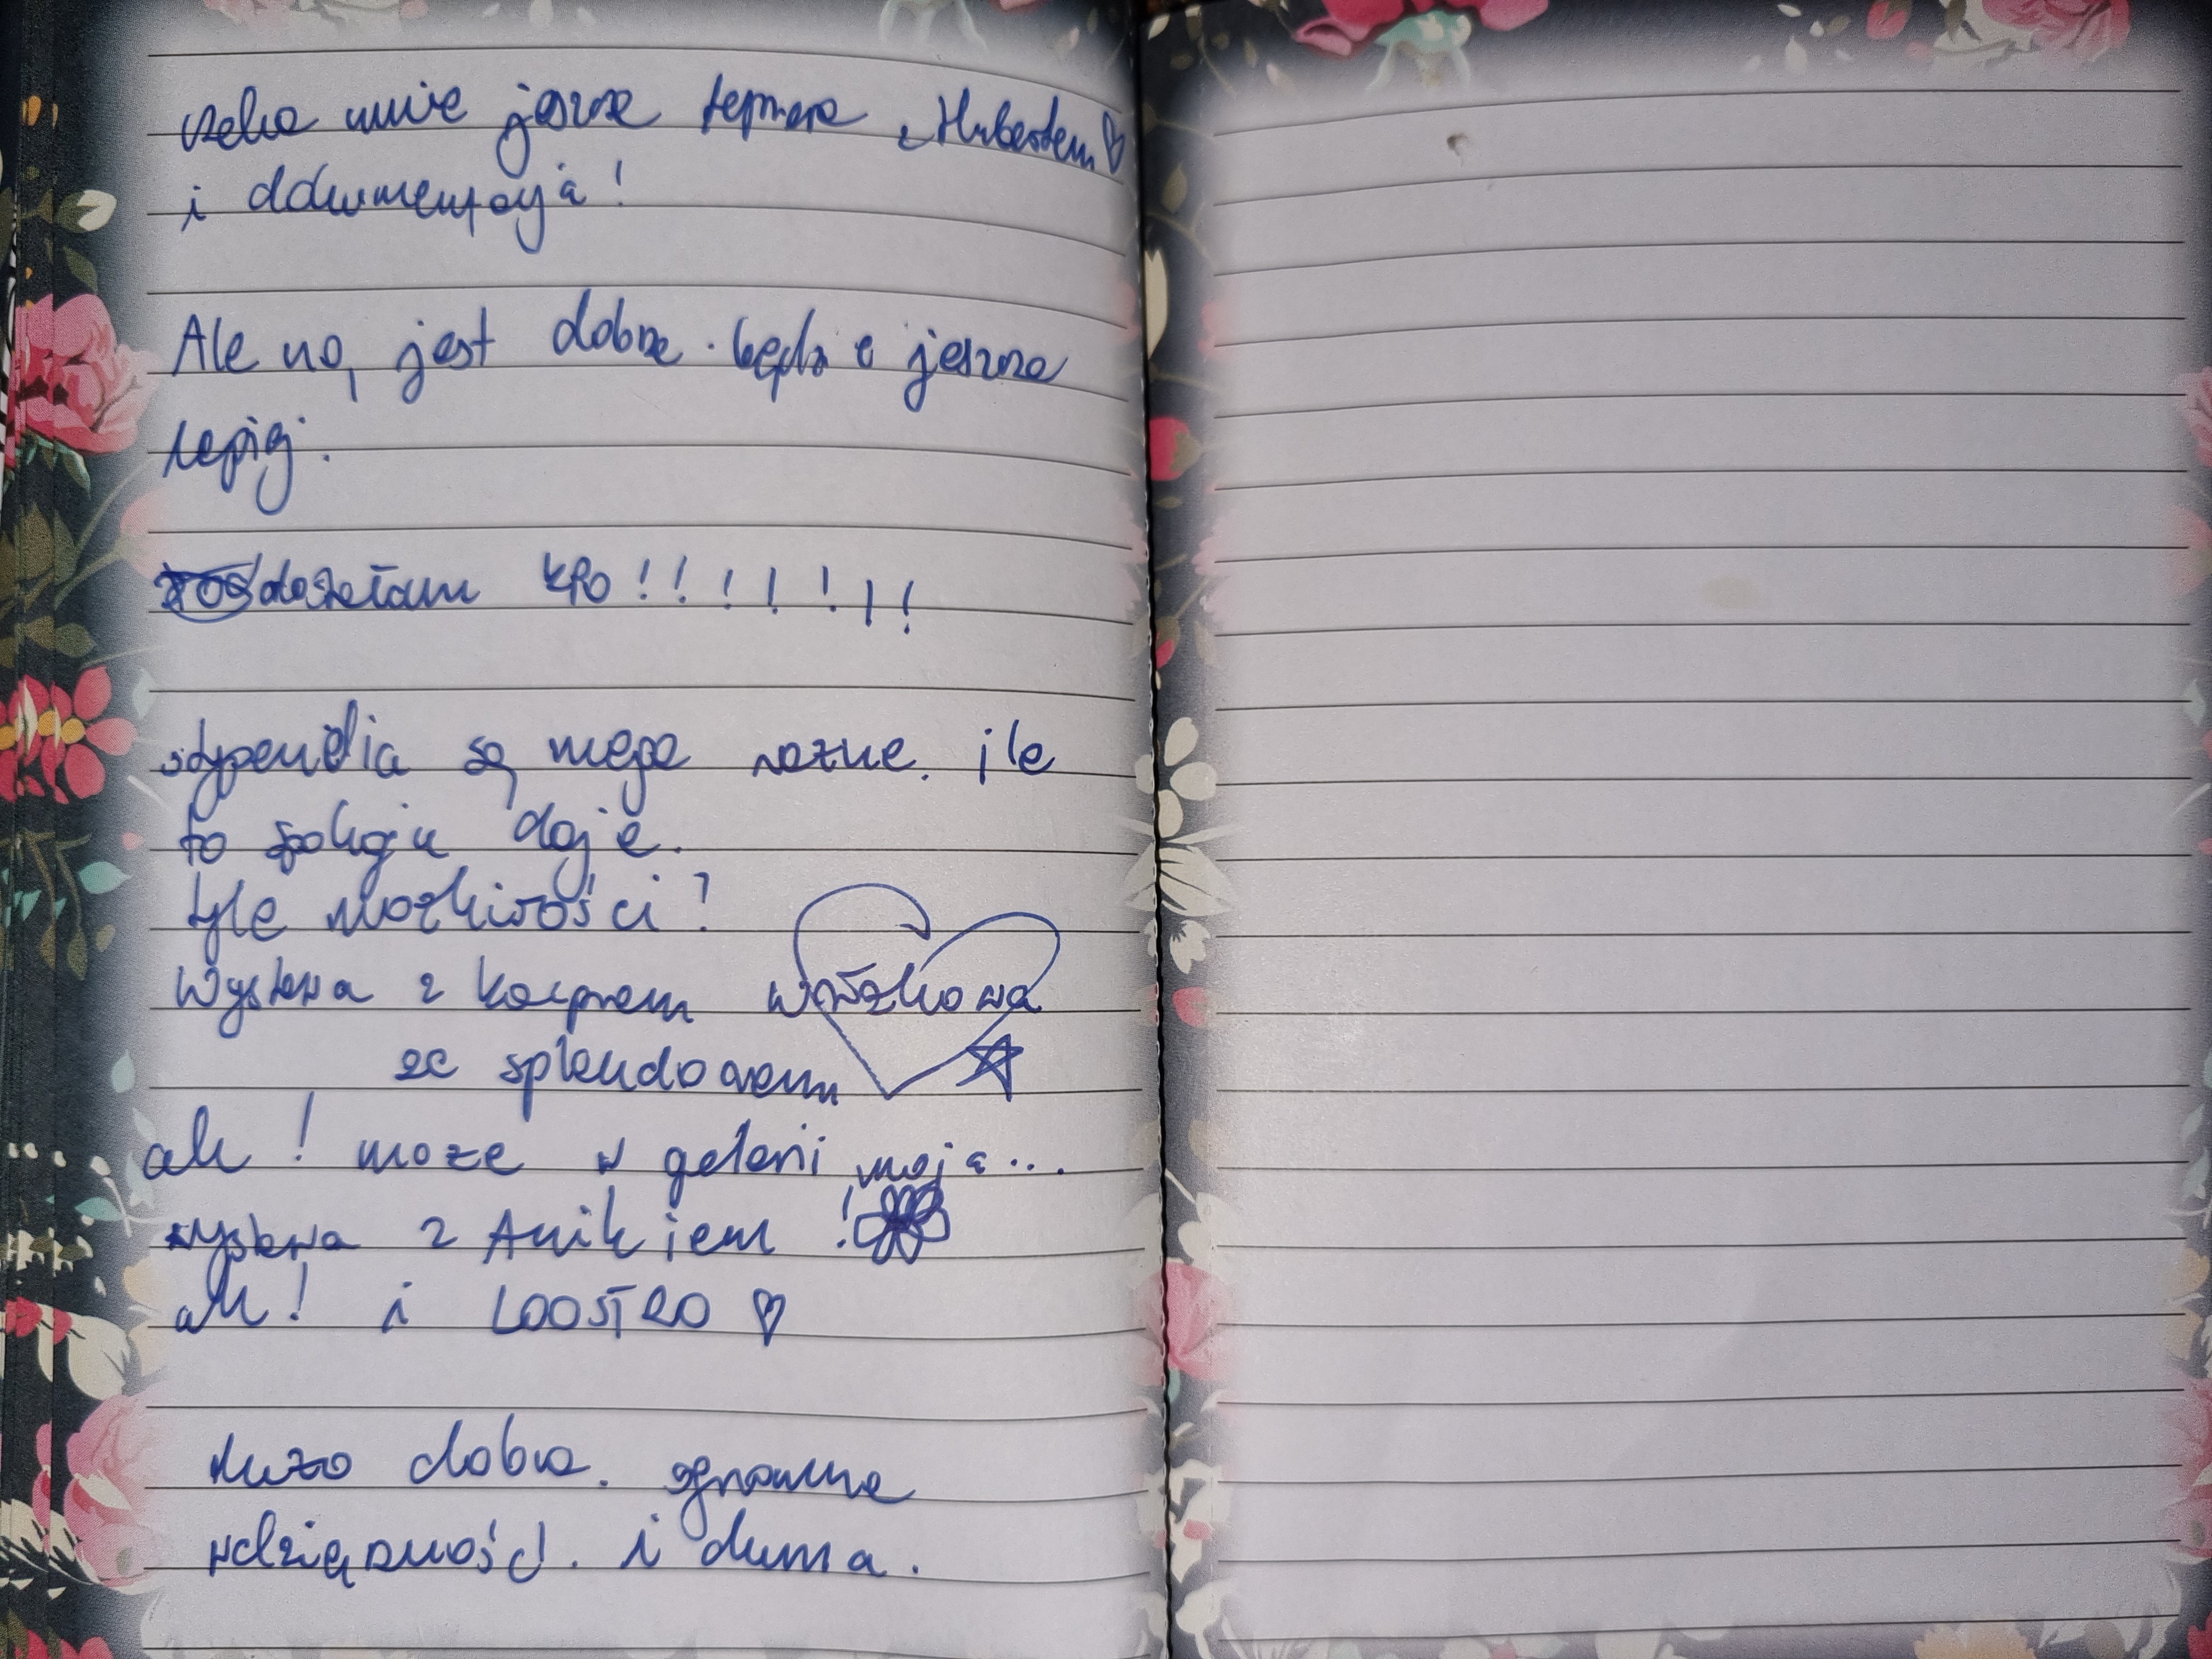 czeka mnie jeszcze z Hubertem
i dokumentacja!
Ale no, jest dobrze. będzie jeszcze
lepiej.
dostałam KPO!!!!!!!
stypendia są mega ważne. ile
to spokoju daje.
tyle możliwości!
Wystawa z kacprem
ze splendorem
ah! może w galerii moja...
wystawa z Anikiem!
ah! i LOOSTRO
dużo dobra. ogromna
wdzięczność. i duma.